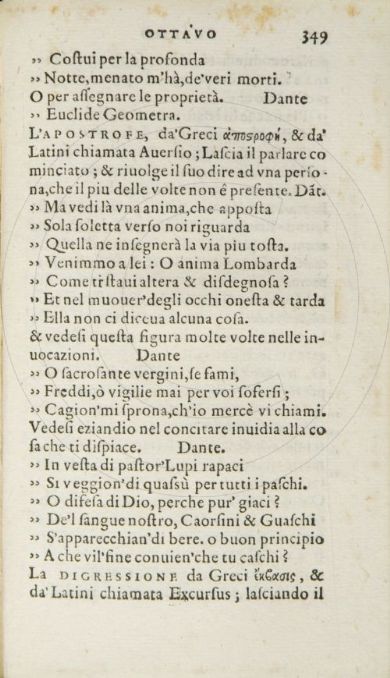 OTTAVO 349
›› Coſtui per la profonda
›› Notte,menato m'hà,de'veri morti.
O per aſſegnare le proprietà. Dante
›› Euclide Geometra.
L'APOSTROFE, da'Greci ἀποςροφή, & da'
Latini chiamata Auerſio; Laſcia il parlare co
minciato; & riuolge il ſuo dire ad vna perſo-
na,che il piu delle volte non é preſente. Dãt.
›› Ma vedi là vna anima,che appoſta
›› Sola ſoletta verſo noi riguarda
›› Quella ne inſegnerà la via piu toſta.
›› Venimmo a lei : O anima Lombarda
›› Come ti ſtaui altera & diſdegnoſa ?
›› Et nel muouer'degli occhi oneſta & tarda
›› Ella non ci diceua alcuna coſa.
& vedeſi queſta figura molte volte nelle in-
uocazioni. Dante
›› O ſacroſante vergini,ſe fami,
›› Freddi,ò vigilie mai per voi ſoferſi ;
›› Cagion'mi ſprona,ch'io mercè vi chiami.
Vedeſi eziandio nel concitare inuidia alla co
ſa che ti diſpiace. Dante.
›› In veſta di paſtor'Lupi rapaci
›› Si veggion'di quaſsù per tutti i paſchi.
›› O difeſa di Dio, perche pur' giaci ?
›› De'l ſangue noſtro, Caorſini & Guaſchi
›› S'apparecchian'di bere. o buon principio
›› A che vil'fine conuien'che tu caſchi ?
La DIGRESSIONE da Greci ἔκβασις, &
da' Latini chiamata Excurſus ; laſciando il